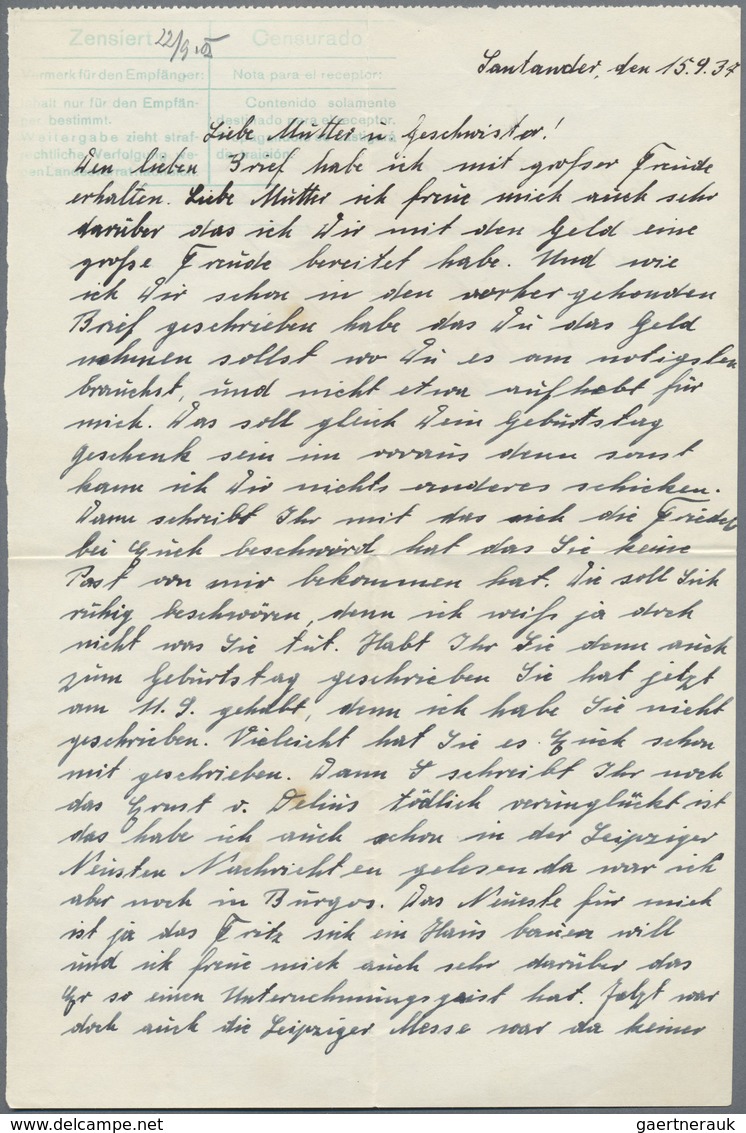 Zensiert 22/9.
Censurado
Vermerk für den Empfänger:
Nota para el receptor:
Inhalt nur für den Empfän-
ger bestimmt.
Weitergabe zieht straf-
rechtliche Verfolgung we-
Contenido solamente
destinado para el receptor.
Santander, den 15.9.37
Liebe Mutter u. Geschwister!
Den lieben Brief habe ich mit großer Freude
erhalten. Liebe Mutter ich freue mich auch sehr
darüber das ich Dir mit den Geld eine
große Freude bereitet habe. Und wie
ich Dir schon in den vorher gehenden
Brief geschrieben habe das Du das Geld
nehmen sollst wo Du es am notigsten
brauchst, und nicht etwa aufhebt für
mich. Das soll gleich Dein Geburtstag
geschenk sein im voraus denn sonst
kann ich Dir nichts anderes schicken.
Dann schreibt Ihr mit das sich die Friedel
bei Euch beschwerd hat das Sie keine
Post von mir bekommen hat. Die soll Sich
ruhig beschwören, denn ich weiß ja doch
nicht was Sie tut. Habt Ihr Sie denn auch
zum Geburtstag geschrieben Sie hat jetzt
am 11.9. gehabt, denn ich habe Sie nicht
geschrieben. Vieleicht hat Sie es Euch schon
mit geschrieben. Dann schreibt Ihr noch
das Ernst v. Delius tödlich verunglückt ist
das habe ich auch schon in der Leipziger
Neusten Nachrichten gelesen da war ich
aber noch in Burgos. Das Neueste für mich
ist ja das Fritz sich ein Haus bauen will
und ich freue mich auch sehr darüber das
Er so einen Unternehmungsgeist hat. Jetzt war
doch auch die Leipziger Messe war da keiner
gaertnerauk